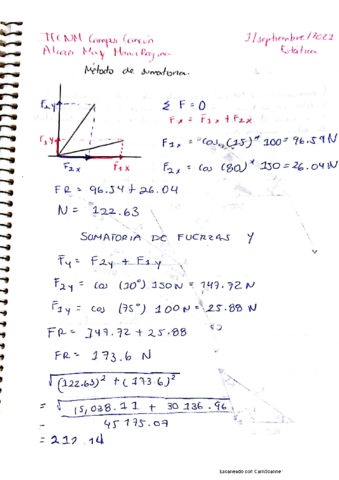 TECNM Campus Cancún
3/septiembre/2021
Estática
Método de sumatoria.
F2y
Σ F = 0
Fx = F1x + F2x
F1y
F1x = cos (15)° 100 = 96.59 N
F2x F1x
F2x = cos (80)° 150 = 26.04 N
FR = 96.59 + 26.04
N = 122.63
SUMATORIA DE FUERZAS Y
Fy = F2y + F1y
F2y = cos (10°) 150 N = 147.72 N
F1y = cos (75°) 100 N = 25.88 N
FR = 147.72 + 25.88
FR = 173.6 N
√(122.63)² + (173.6)²
= √15,038.11 + 30136.96
45175.07
= 212.14
Escaneado con CamScanner